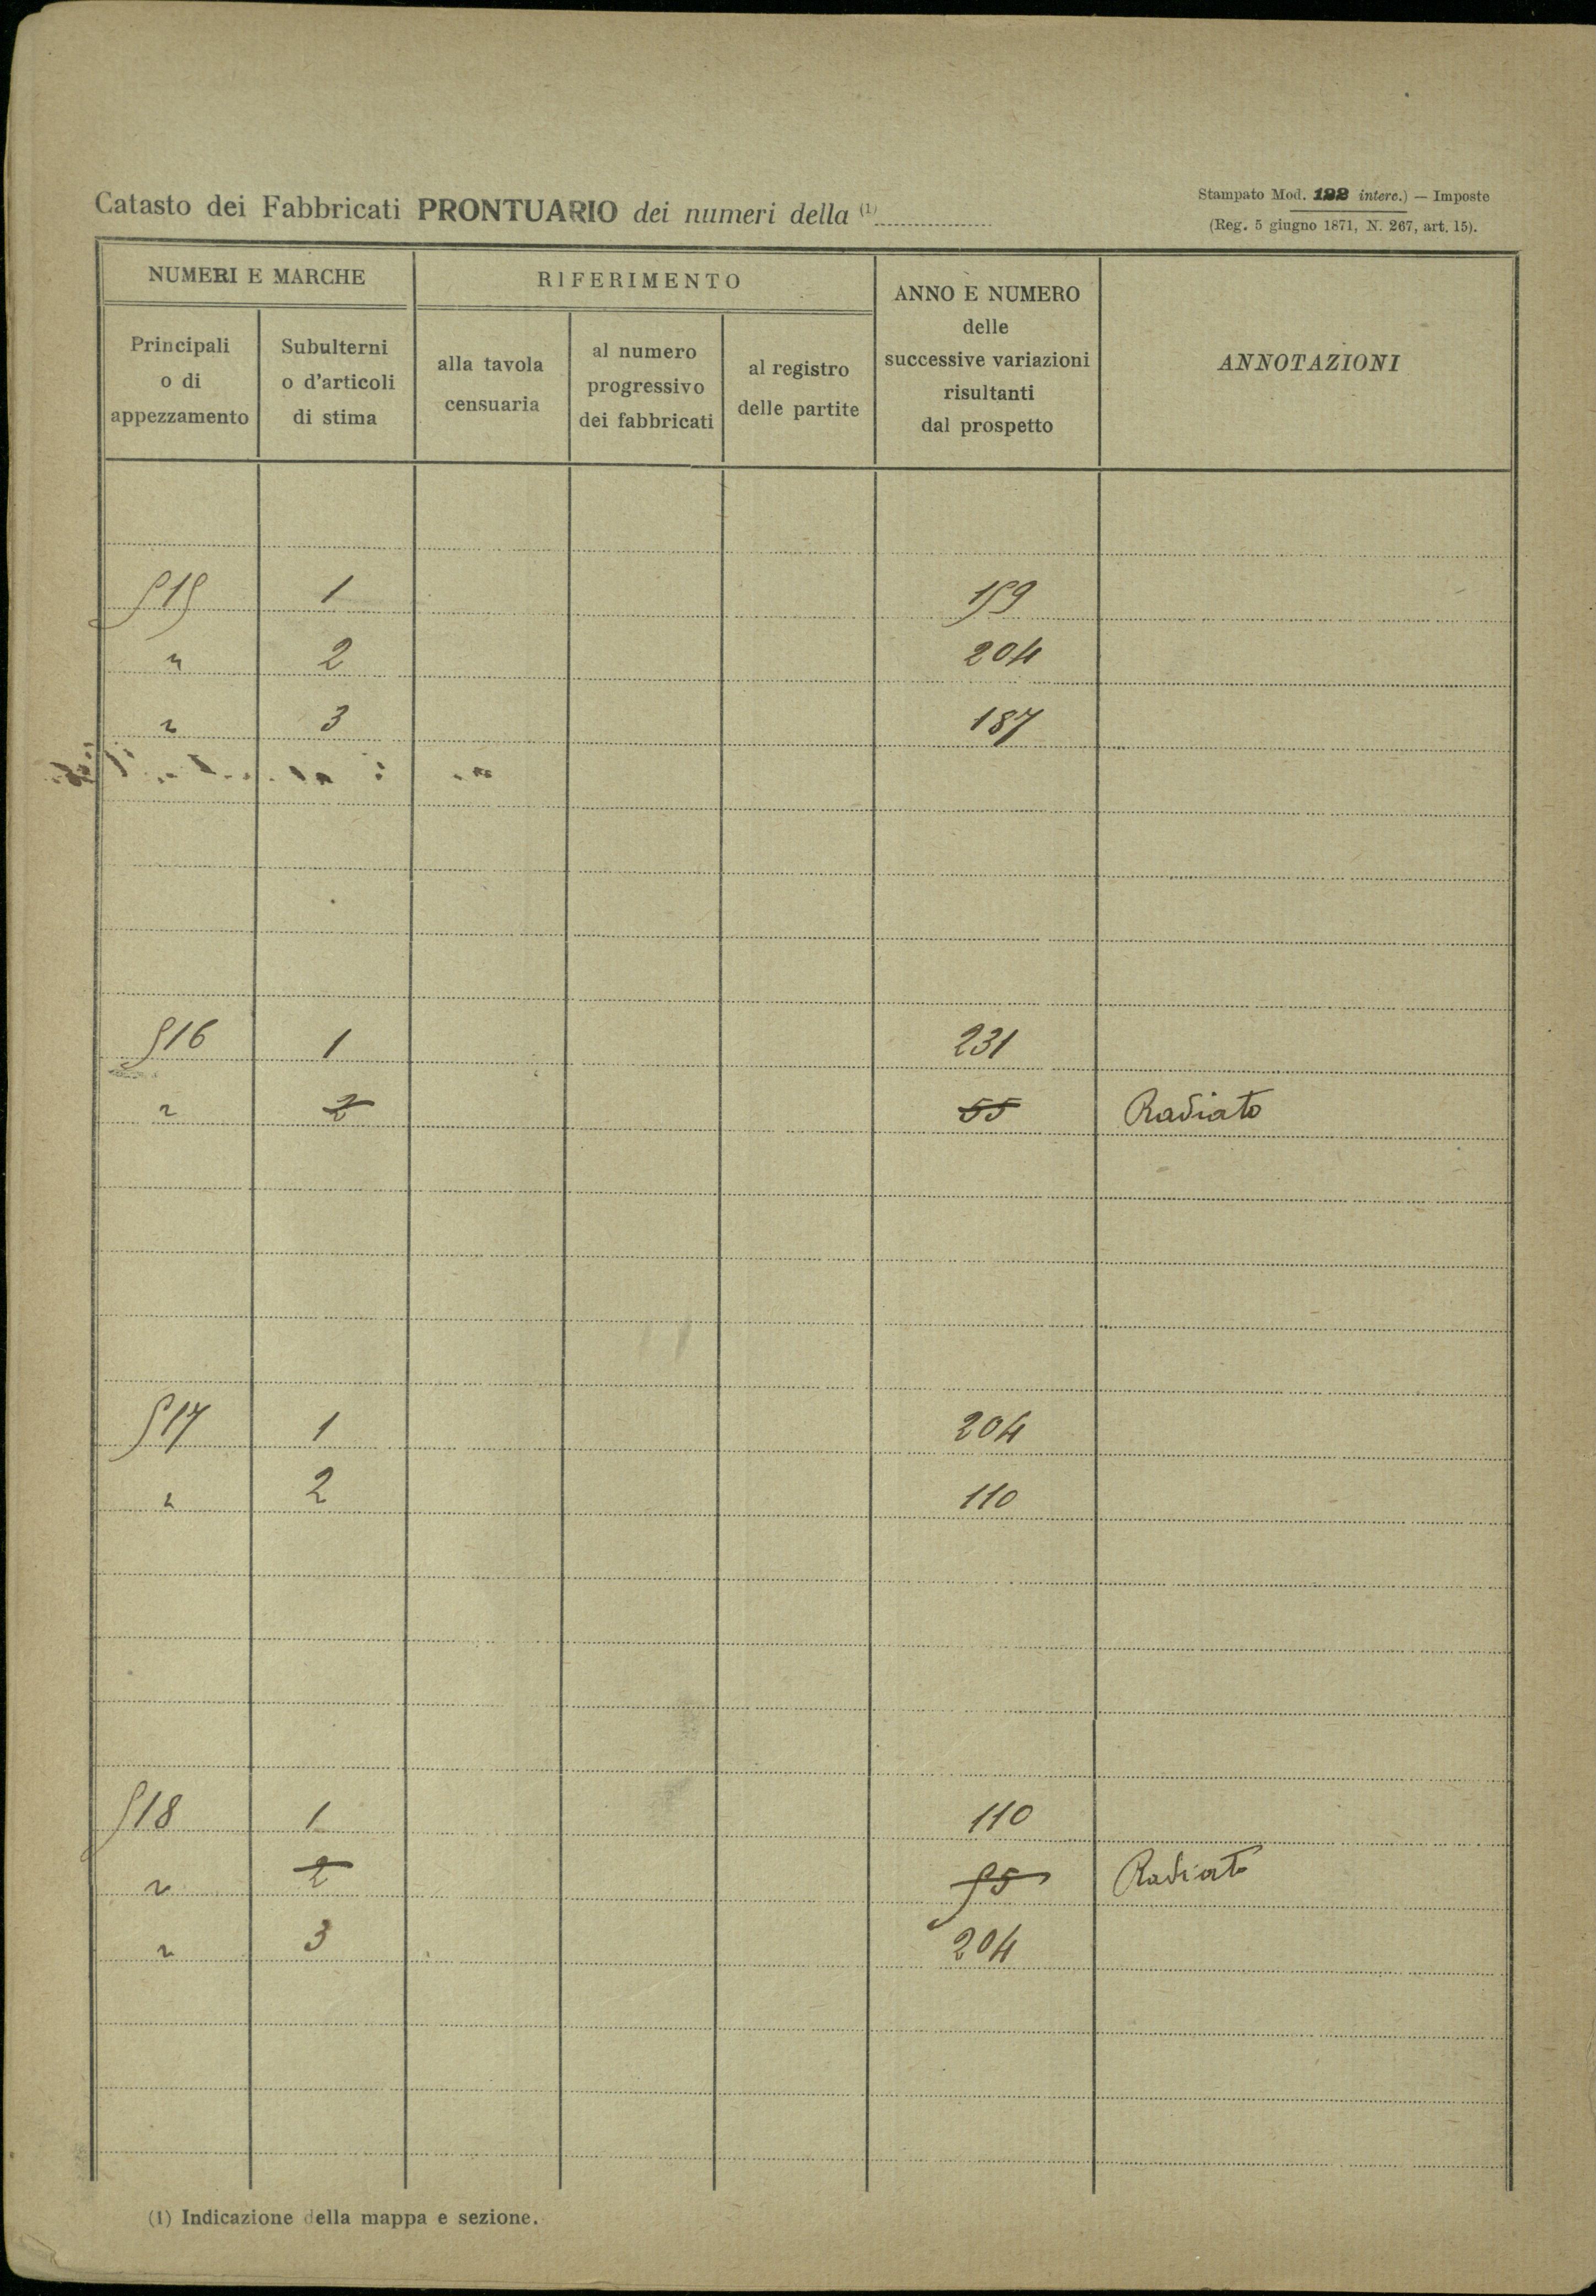 Catasto dei Fabbricati PRONTUARIO dei numeri della (1)
Stampato Mod. 122 interc.) — Imposte
(Reg. 5 giugno 1871, N. 267, art. 15).
NUMERI E MARCHE
RIFERIMENTO
ANNO E NUMERO
delle
successive variazioni
risultanti
dal prospetto
ANNOTAZIONI
Principali
o di
appezzamento
Subulterni
o d'articoli
di stima
alla tavola
censuaria
al numero
progressivo
dei fabbricati
al registro
delle partite
515 1 159
" 2 204
" 3 187
516 1 231
" 2 55 Radiato
517 1 204
" 2 110
518 1 110
" 2 55 Radiato
" 3 204
(1) Indicazione della mappa e sezione.